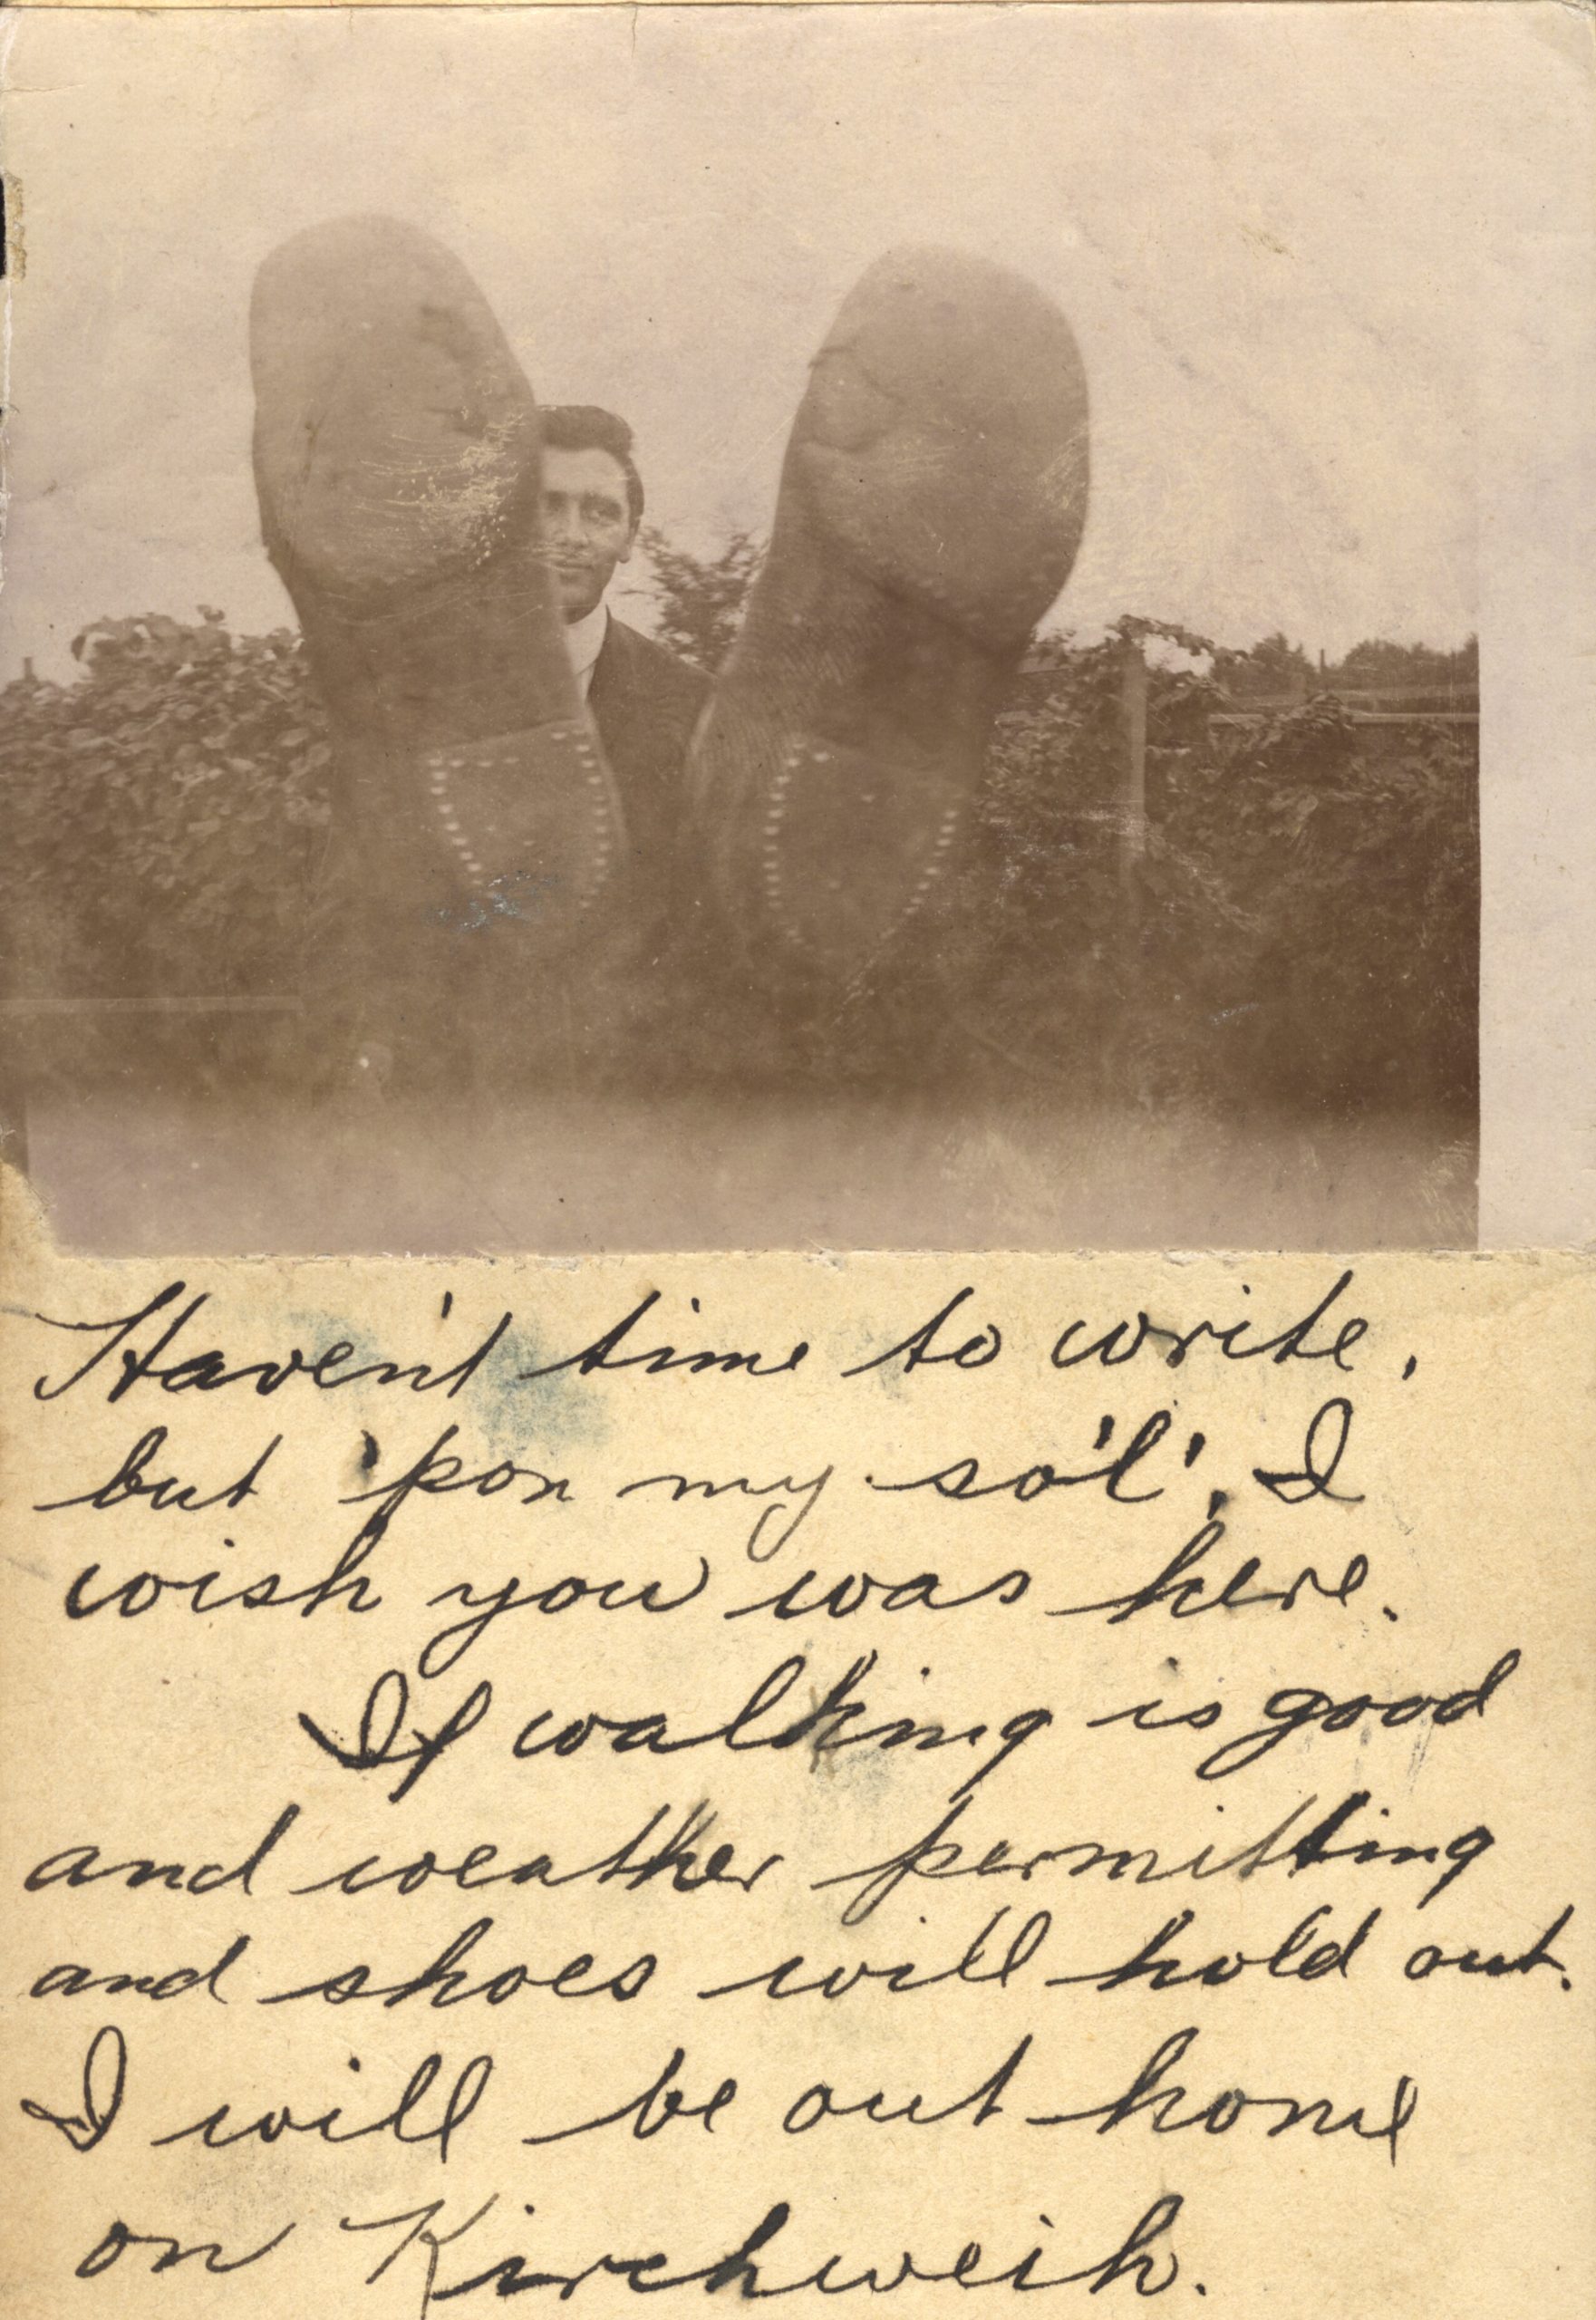 Haven't time to write,
but 'pon my so'l', I
wish you was here.
If walking is good
and weather permitting
and shoes will hold out.
I will be out home
on Kirchweih.